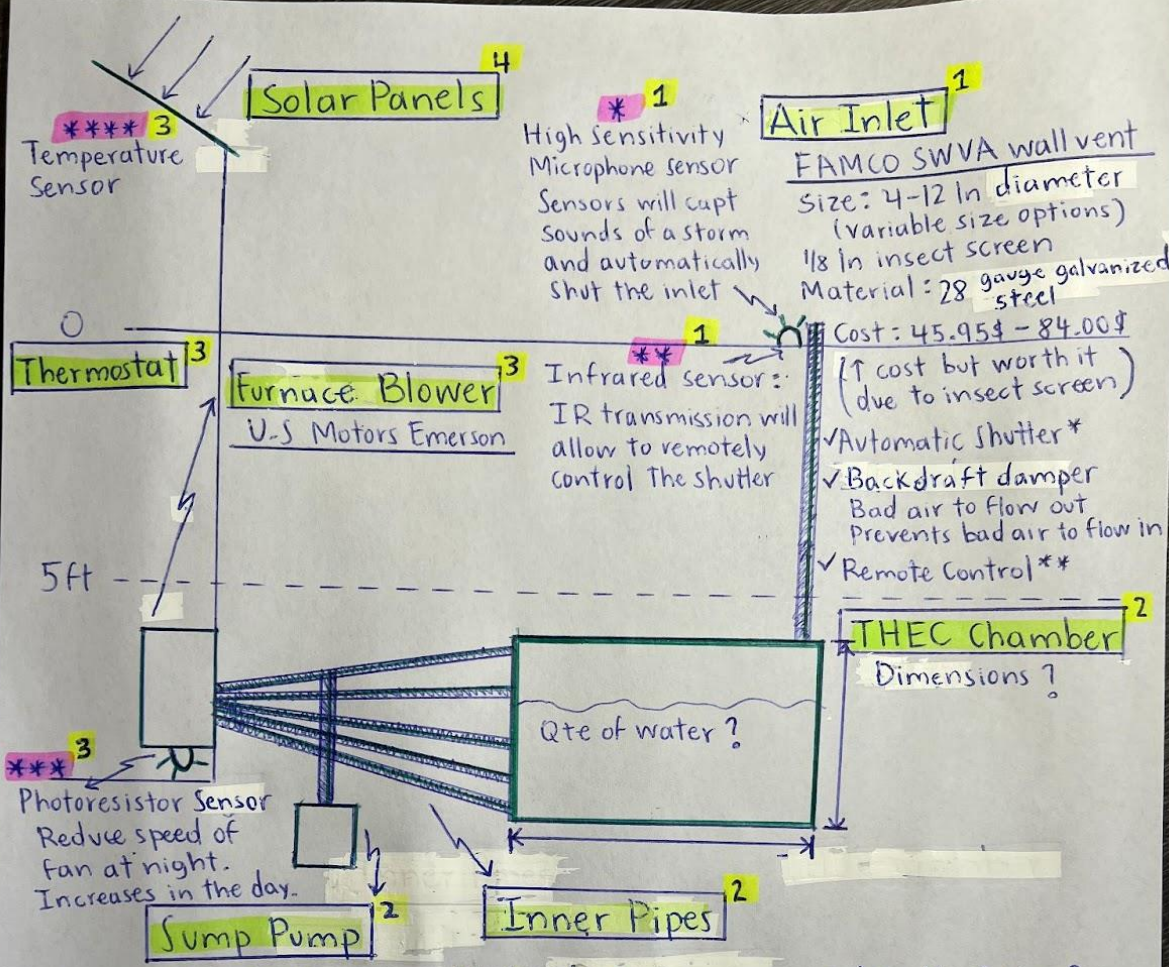 Solar Panels 4
**** 3
Temperature
Sensor
* 1
High Sensitivity
Microphone sensor
Sensors will capt
sounds of a storm
and automatically
shut the inlet
Air Inlet 1
FAMCO SWVA wall vent
Size: 4-12 In diameter
(variable size options)
1/8 in insect screen
Material: 28 gauge galvanized
steel
Cost: 45.95$ - 84.00$
(↑ cost but worth it
due to insect screen)
✓Automatic Shutter*
✓Backdraft damper
Bad air to flow out
Prevents bad air to flow in
✓Remote Control**
0
Thermostat 3
Furnace Blower 3
U.S Motors Emerson
** 1
Infrared sensor:
IR transmission will
allow to remotely
control The shutter
5ft
THEC Chamber 2
Dimensions ?
Qte of water ?
*** 3
Photoresistor Sensor
Reduce speed of
fan at night.
Increases in the day.
Sump Pump 2
Inner Pipes 2